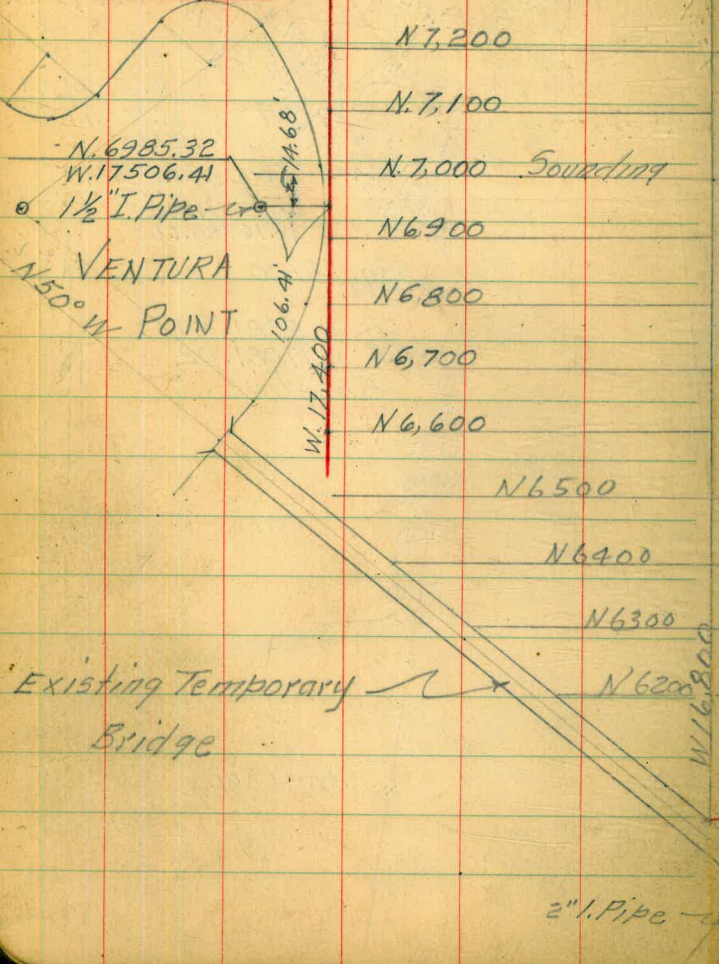 N 7,200
N. 7,100
N. 6985.32
W. 17506.41
14.68'
N. 7,000 Sounding
1½" I. Pipe
N6900
VENTURA
POINT
N50° W
106.41'
N6,800
N6,700
W. 17,400
N6,600
N6500
N6400
N6300
Existing Temporary
Bridge
N6200
W 16,800
2" I. Pipe